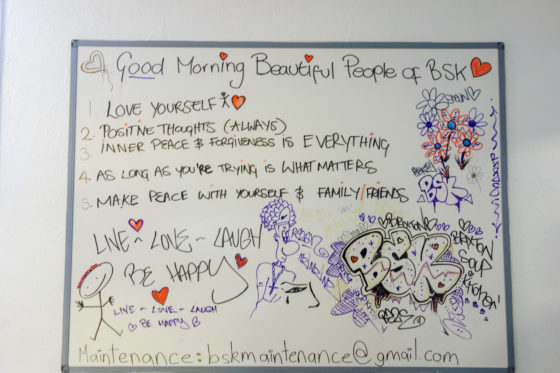 Good Morning Beautiful People of BSK
1. LOVE YOURSELF
2. POSITIVE THOUGHTS (ALWAYS)
3. INNER PEACE & FORGIVENESS IS EVERYTHING
4. AS LONG AS YOU'RE TRYING IS WHAT MATTERS
5. MAKE PEACE WITH YOURSELF & FAMILY/FRIENDS
LIVE ~ LOVE ~ LAUGH
BE HAPPY
LIVE ~ LOVE ~ LAUGH
BE HAPPY
BSK
BSK
BRIXTON
SOUP
KITCHEN!
Maintenance: bskmaintenance@gmail.com